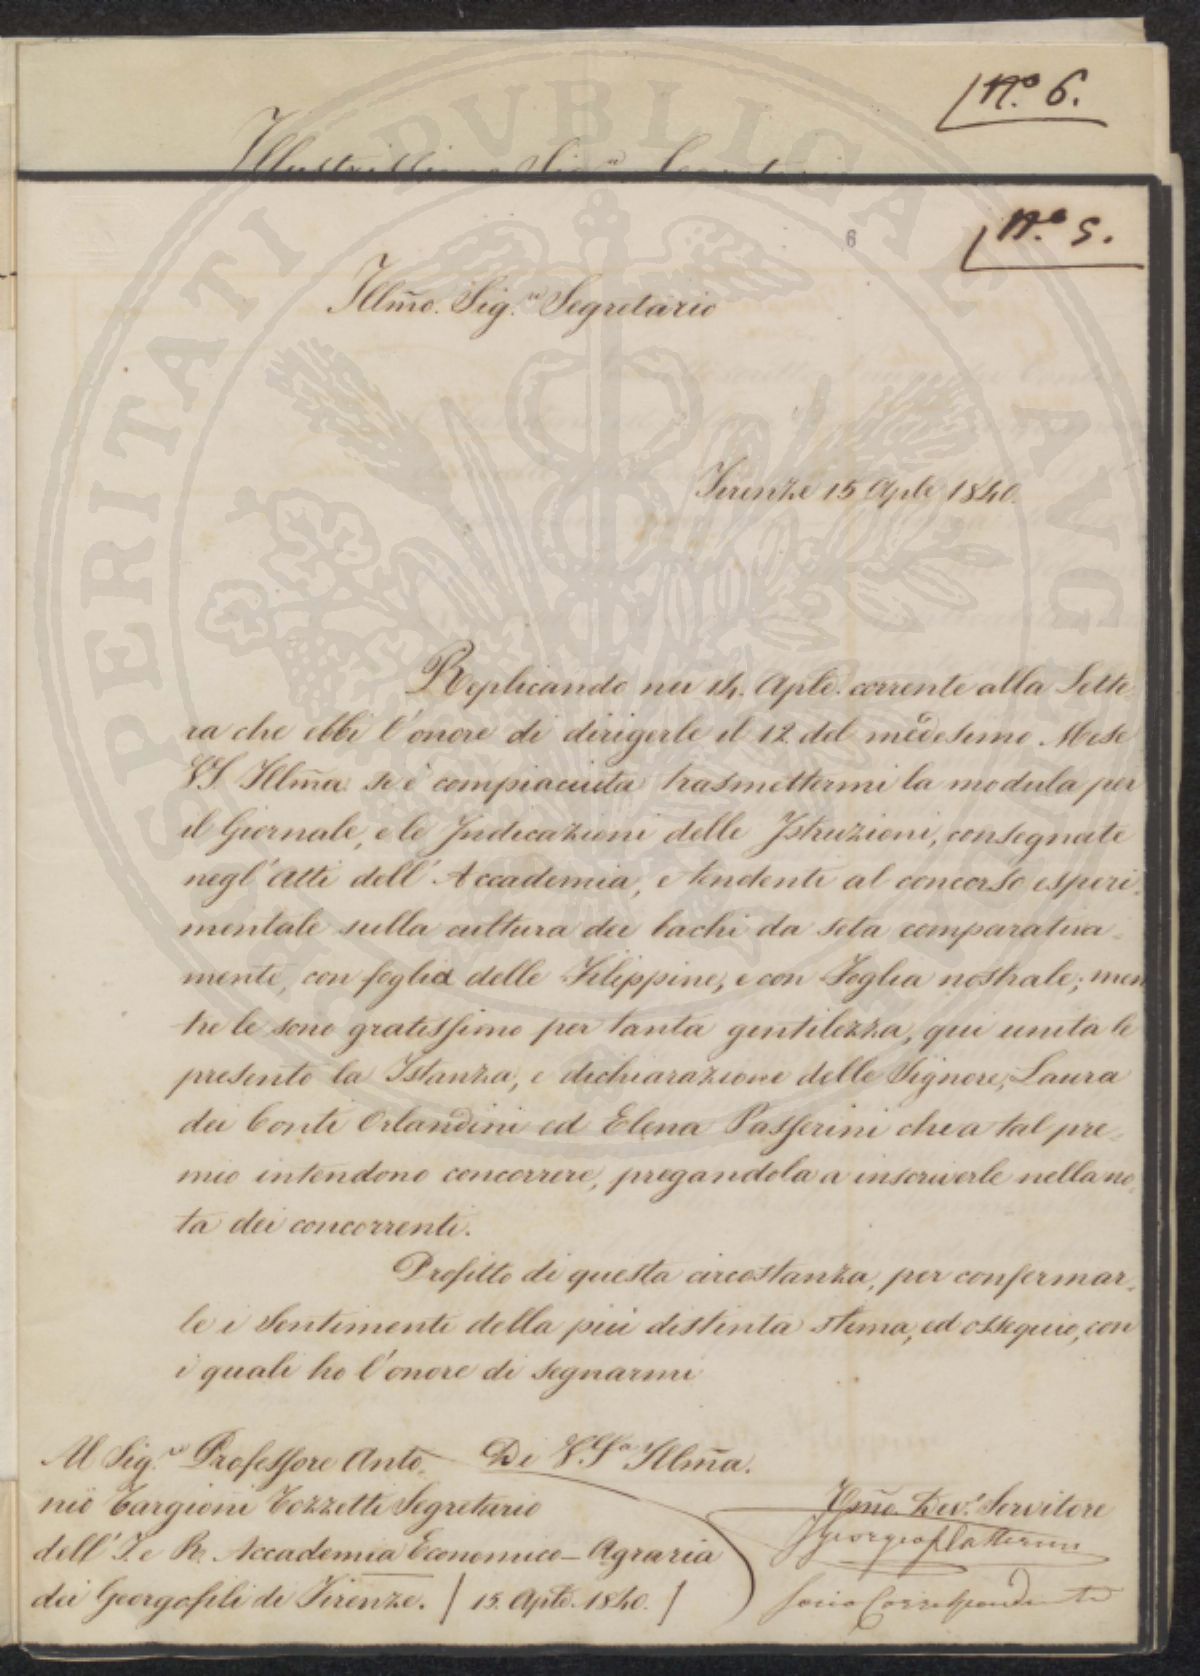 N.º 6.
Illustrissimo Sig.re Segretario
N.º 5.
6
Illm̃o. Sig.re Segretario
Firenze 15 Aple 1840.
Replicando nei 14. Aple. corrente alla Lette-
ra che ebbi l'onore di dirigerle il 12 del medesimo Mese
VS. Illm̃a. si è compiaciuta trasmettermi la modula per
il Giornale, e le Indicazioni delle Istruzioni, consegnate
negl'Atti dell'Accademia, e tendenti al concorso esperi-
mentale sulla cultura dei bachi da seta comparativa-
mente, con foglia delle Filippine, e con Foglia nostrale; men
tre le sono gratissimo per tanta gentilezza, qui unita le
presento la Istanza, e dichiarazione delle Signore, Laura
dei Conti Orlandini ed Elena Passerini che a tal pre-
mio intendono concorrere, pregandola a inscriverle nella no-
ta dei concorrenti.
Profitto di questa circostanza, per confermar-
le i Sentimenti della più distinta stima, ed ossequio, con
i quali ho l'onore di segnarmi
Di V.S.a Illm̃a.
Al Sig.re Professore Anto-
nio Targioni Tozzetti Segretario
dell'I. e R. Accademia Economico-Agraria
dei Georgofili di Firenze. / 15. Aple. 1840. /
Dev.º Servitore
Passerini
Socio Corrispondente
SPERITATI PVBLICAE AVG